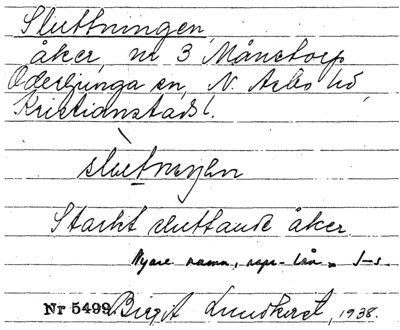 Sluttningen
åker, nr 3 Månstorp
Oderljunga sn, N. Åsbo hd,
Kristianstads l.
slutnen
Starkt sluttande åker
Nyare namn, repr. lån. J-s.
Nr 5499 Birgit Lundkvist, 1938.